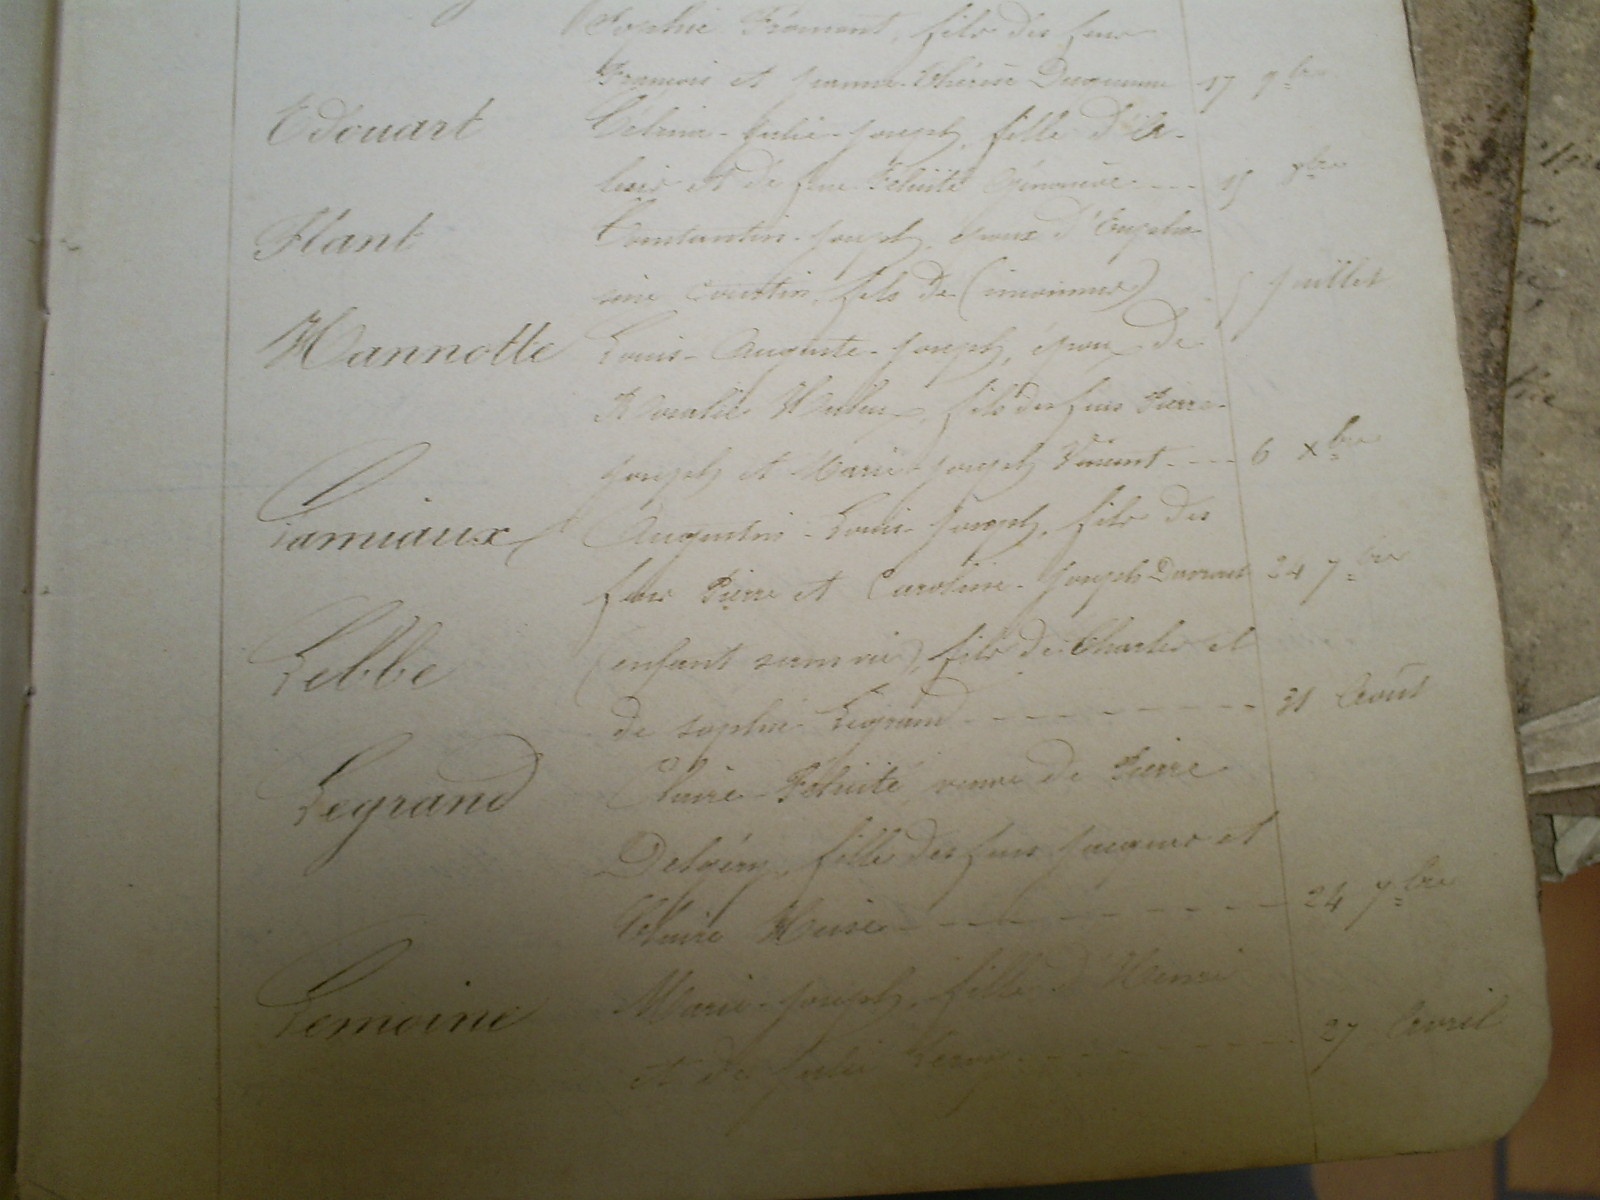 Sophie Fromont, fils des feus
François et Jeanne-Thérèse Duquesne 17 9bre
Edouart Célina-Julie-Joseph, fille d'A-
lexis et de feue Félicité Génovieve ---- 15 9bre
Flant Constantin-Joseph, époux d'Euphro-
sine Courtin, fils de (inconnus) 5 Juillet
Hannotte Louis-Auguste-Joseph, époux de
Rosalie fils des feus Pierre-
Joseph et Marie-Joseph Vincent ---- 6 Xbre
Lamiaux Augustin-Louis-Joseph, fils des
feus Pierre et Caroline-Joseph 24 7bre
Lebbe (enfant sans vie), fils de Charles et
de Sophie Legrand ---------- 31 Août
Legrand Claire-Félicité, veuve de Pierre
fille des feus Jacques et
Claire ---------- 24 7bre
Lemoine Marie-Joseph, fille d'Henri
et de Julie Leroy ---------- 27 Avril